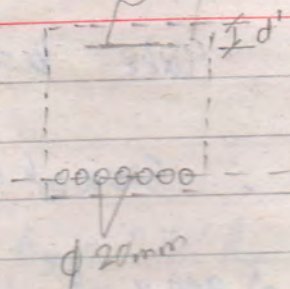 d'
ϕ 20mm